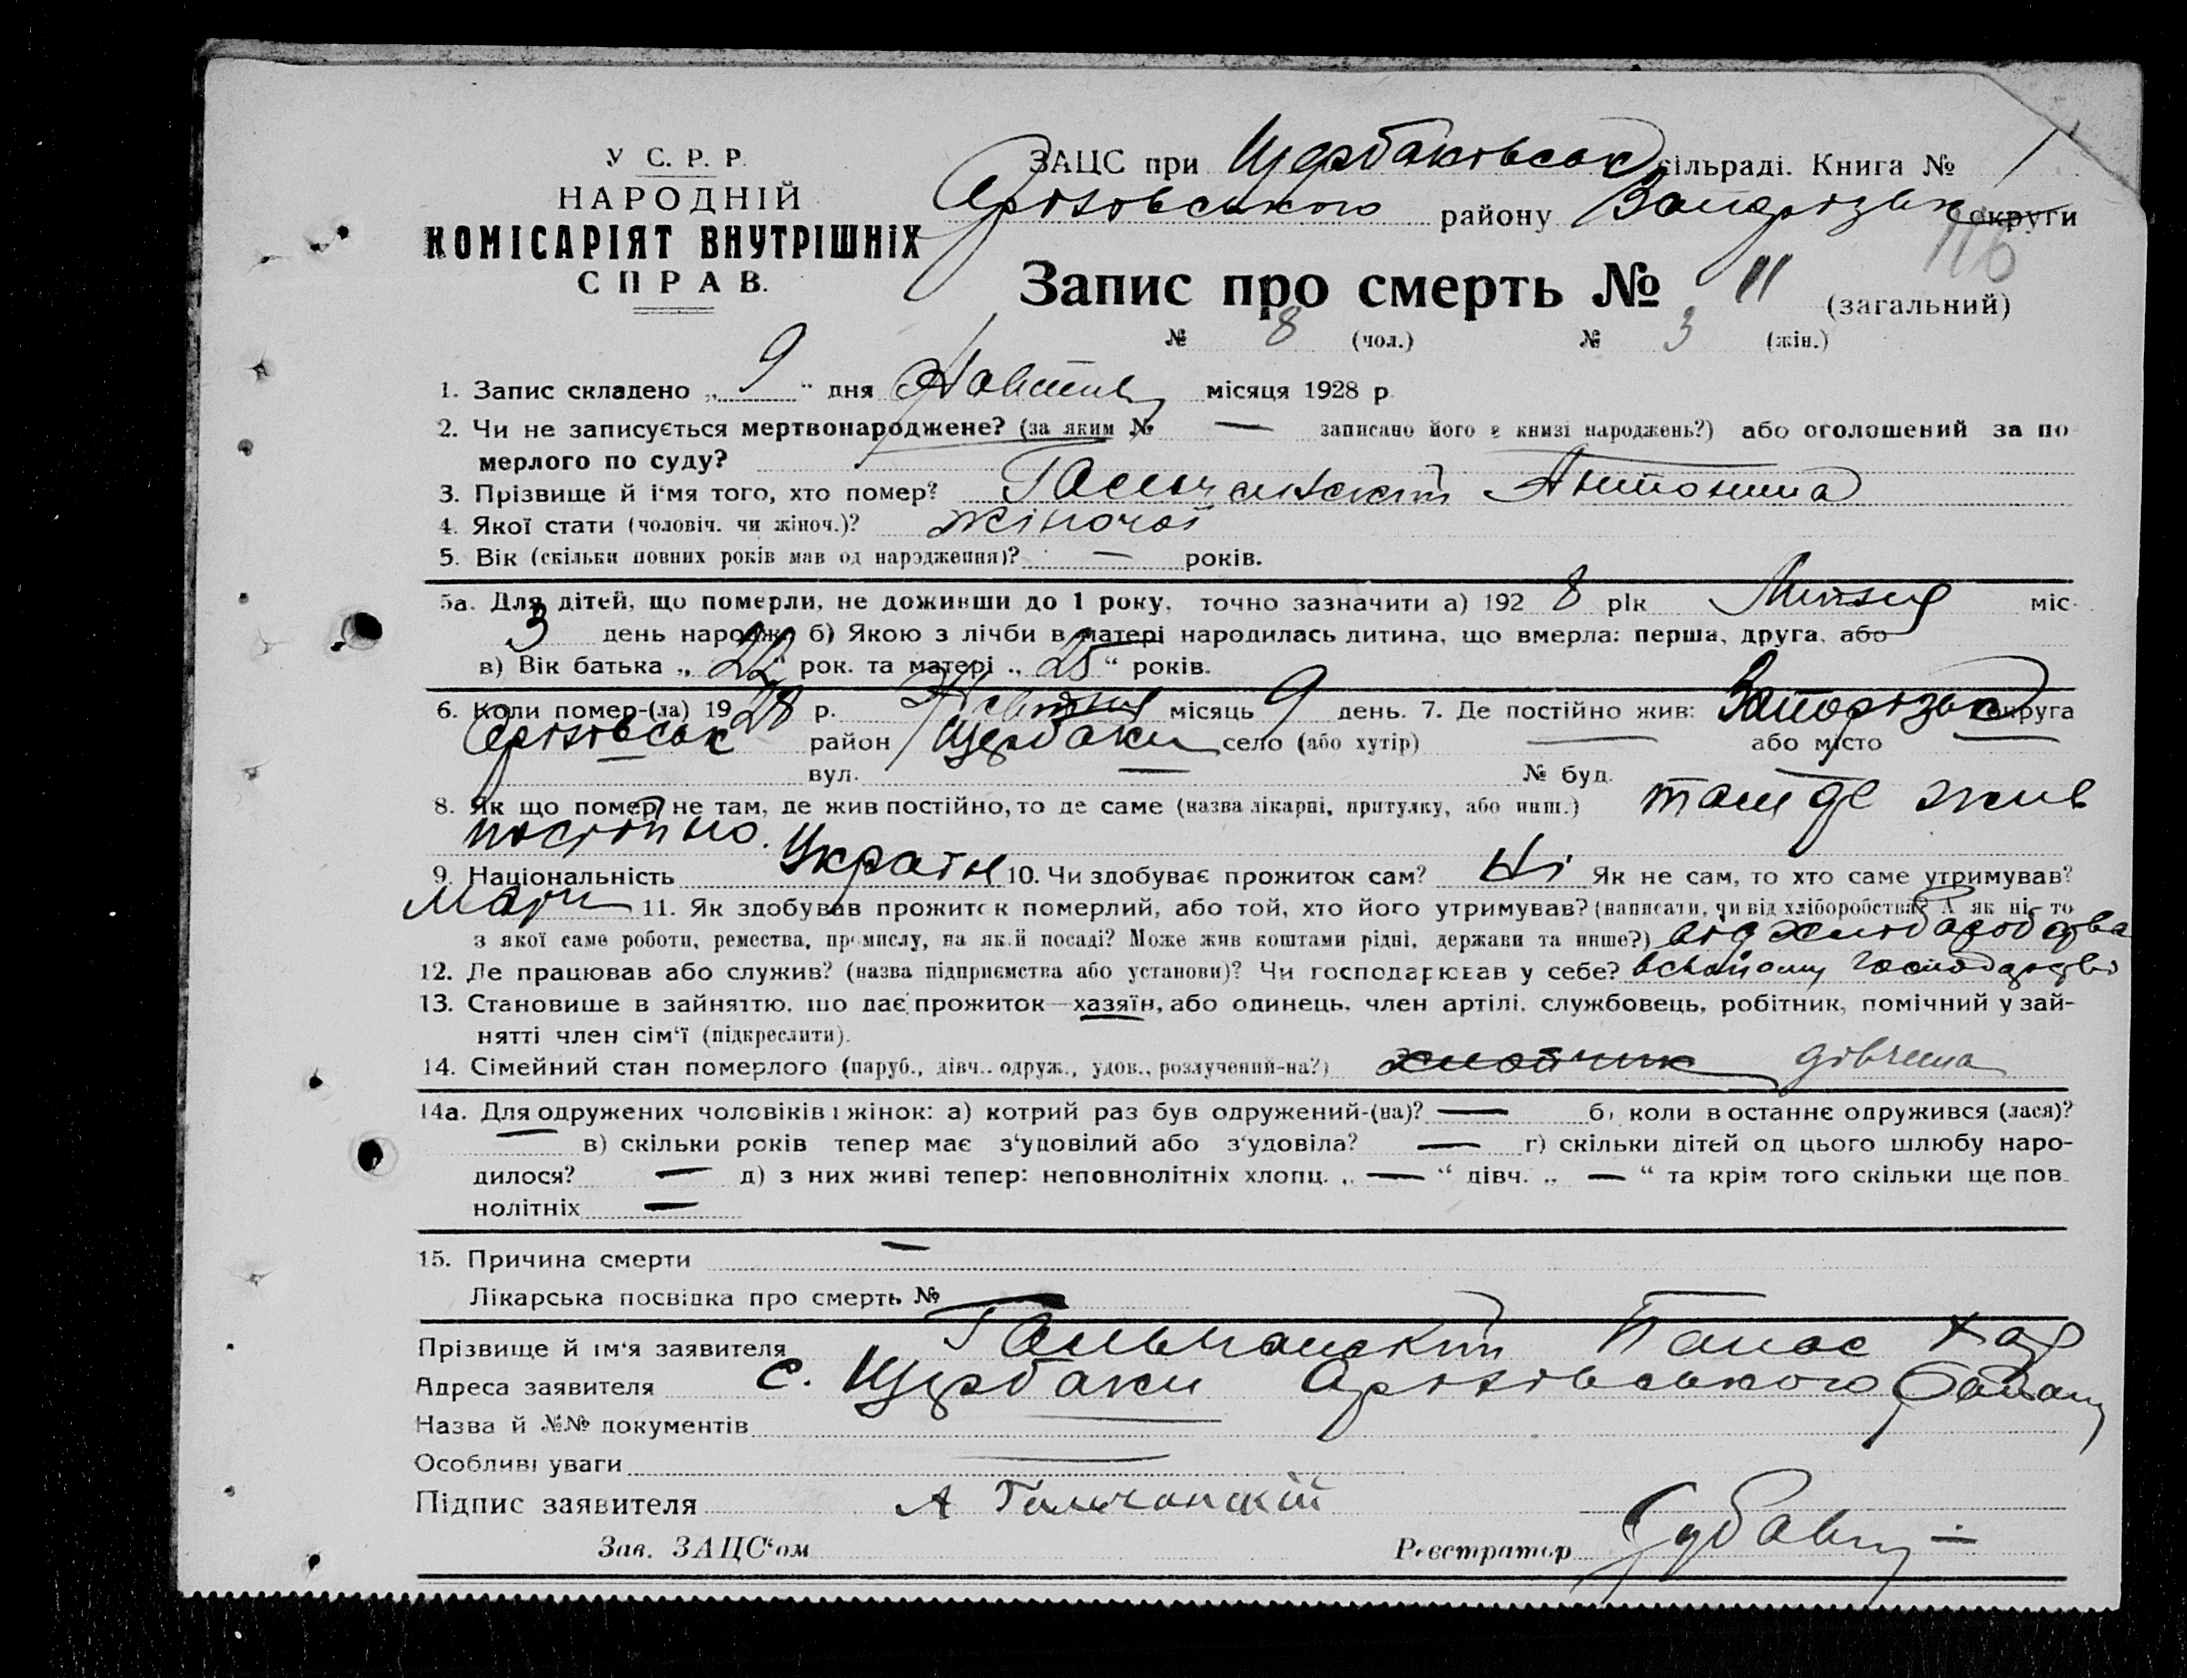 У С. Р. Р.
НАРОДНІЙ
КОМІСАРІЯТ ВНУТРІШНІХ
СПРАВ.
ЗАЦС при Щербаківськ сільраді. Книга № 1
Оріхівського району Запорізьк округи
116
Запис про смерть № 11 (загальний)
№ 8 (чол.) № 3 (жін.)
1. Запис складено „ 9 “ дня місяця 1928 р.
2. Чи не записується мертвонароджене? (за яким № — записано його в книзі народжень?) або оголошений за по
мерлого по суду?
3. Прізвище й і'мя того, хто помер? Антонина
4. Якої стати (чоловіч. чи жіноч.)? жіночої
5. Вік (скільки повних років мав од народження)? — років.
5а. Для дітей, що померли, не доживши до 1 року, точно зазначити а) 1928 рік міс.
3 день народж. б) Якою з лічби в матері народилась дитина, що вмерла: перша, друга, або
в) Вік батька „ 22 “ рок. та матері „ 25 “ років.
6. Коли помер-(ла) 1928 р. місяць 9 день. 7. Де постійно жив: Запорізьк округа
Оріхівськ район Щербаки село (або хутір) — або місто —
вул. — № буд. —
8. Як що помер не там, де жив постійно, то де саме (назва лікарні, притулку, або инш.) там де жив
постійно.
9. Національність Україн 10. Чи здобуває прожиток сам? Ні Як не сам, то хто саме утримував?
Мати 11. Як здобував прожиток померлий, або той, хто його утримував? (написати, чи від хліборобства? А як ні, то
з якої саме роботи, ремества, промислу, на якій посаді? Може жив коштами рідні, держави та инше?) від хліборобства
12. Де працював або служив? (назва підприємства або установи)? Чи господарював у себе? в своїому господарстві
13. Становише в зайняттю, що дає прожиток—хазяїн, або одинець, член артілі, службовець, робітник, помічний у зай-
нятті член сім'ї (підкреслити).
14. Сімейний стан померлого (паруб., дівч., одруж., удов., розлучений-на?) хлопчик дівчина
14а. Для одружених чоловіків і жінок: а) котрий раз був одружений-(на)? — б) коли в останнє одружився (лася)?
— в) скільки років тепер має з'удовілий або з'удовіла? — г) скільки дітей од цього шлюбу наро-
дилося? — д) з них живі тепер: неповнолітніх хлопц. „ — “ дівч. „ — “ та крім того скільки ще пов-
нолітніх —
15. Причина смерти —
Лікарська посвідка про смерть № —
Прізвище й ім'я заявителя Гальчанский Панас
Адреса заявителя с. Щербаки Оріхівського району
Назва й №№ документів —
Особливі уваги —
Підпис заявителя А Гальчанский
Зав. ЗАЦС'ом Реєстратор